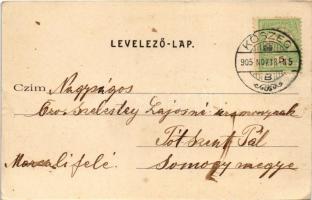 LEVELEZŐ-LAP.
KŐSZEG
905 NOV 18 N5
B
Czim Nagyságos
Özv. Szelestey Lajosné úrasszonynak
Tót Szent Pál
Marczali felé.
Somogy megye